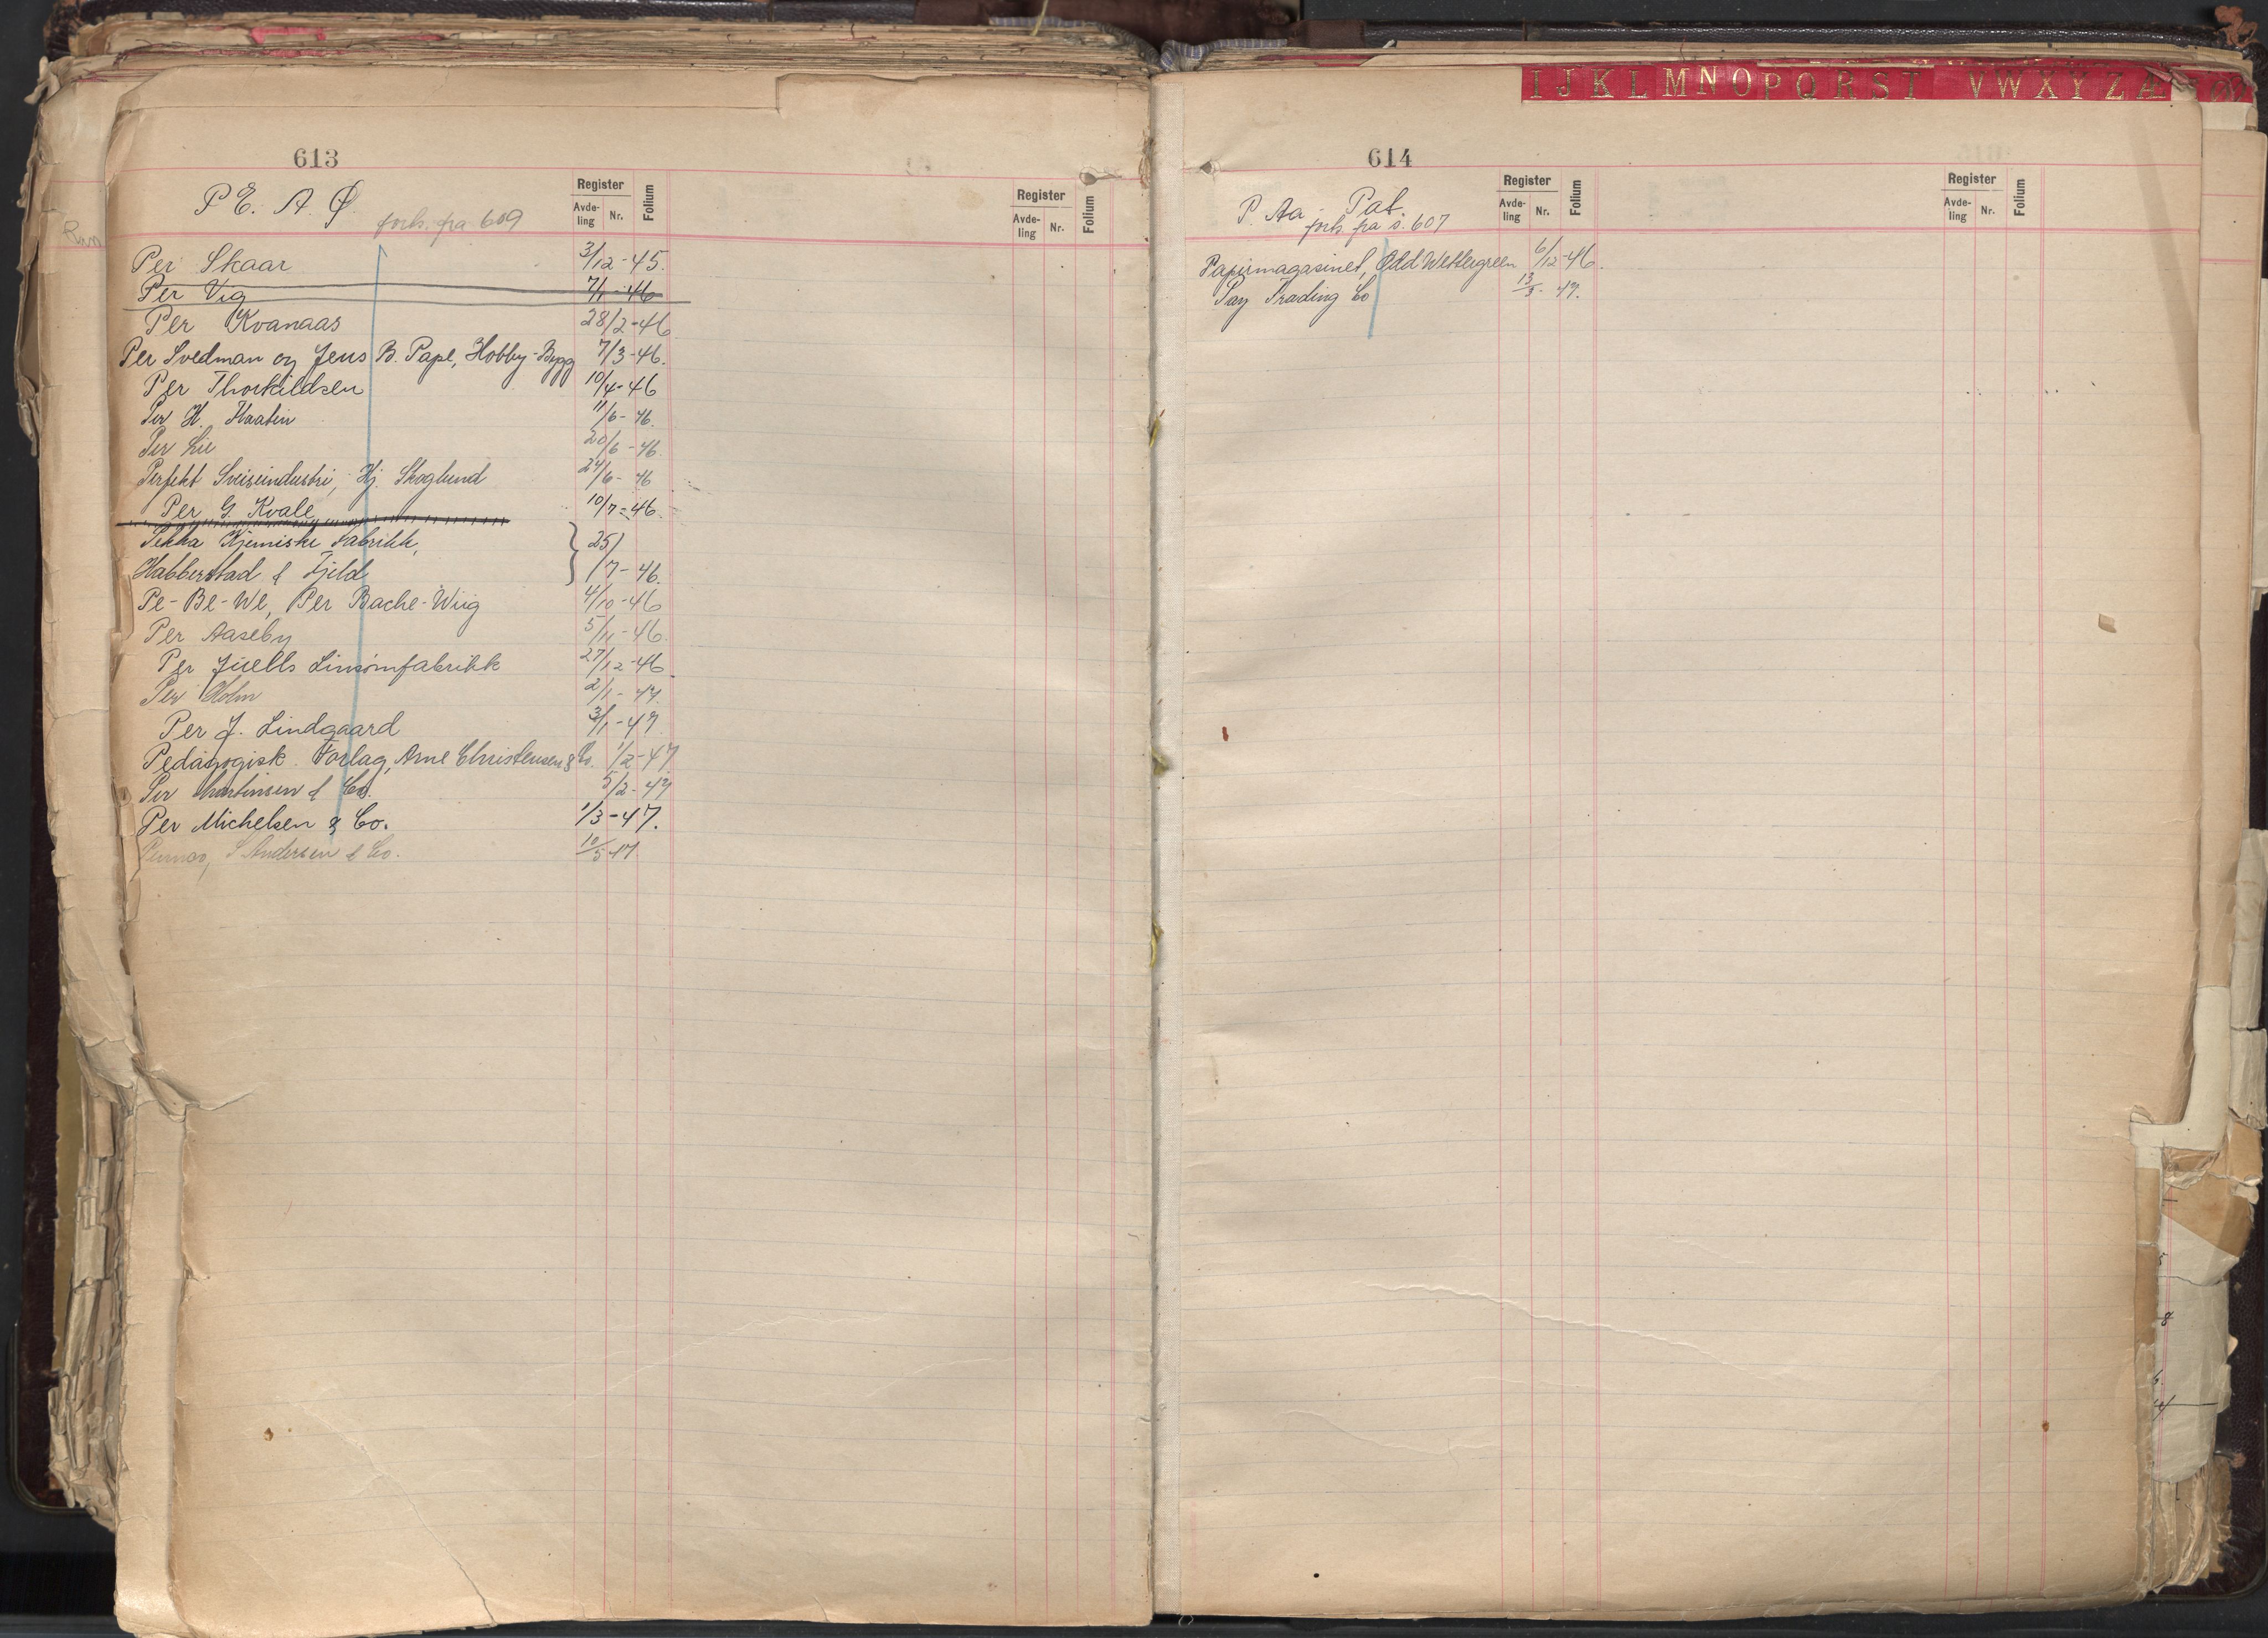 I J K L M N O P Q R S T V W X Y Z Æ
613
P E. A. Ø.
forts. fra 609
Register
Avde-
ling Nr. Folium
Register
Avde-
ling Nr. Folium
Per Skaar 3/12-45.
Per Vig 7/1-46
Per Kvanaas 28/2-46
Per Svedman og Jens B. Pape, Hobby-Bygg 7/3-46.
Per Thorkildsen 10/4-46
Per H. Haatin 11/6-46.
Per Lie 20/6-46.
Perfekt Sveiseindustri, Hj. Skoglund 24/6-46
Per G. Kvale 10/7-46.
Pekka Kjemiske Fabrikk, } 25/
Habberstad & Fjeld /7-46.
Pe-Be-We, Per Bache-Wiig 4/10-46
Per Aaseby 5/11-46.
Per Juells Linsömfabrikk 27/12-46
Per Holm 2/1-47.
Per J. Lindgaard 3/1-47
Pedagogisk Forlag, Arne Christensen & Co. 1/2-47
Per Martinsen & Co. 5/2-47
Per Michelsen & Co. 1/3-47.
S Andersen & Co. 10/5-47
614
P. Aa - Pat.
forts. fra s. 607
Register
Avde-
ling Nr. Folium
Register
Avde-
ling Nr. Folium
Papirmagasinet, Odd Wettergreen 6/12-46.
Pay Trading Co 13/3-47.